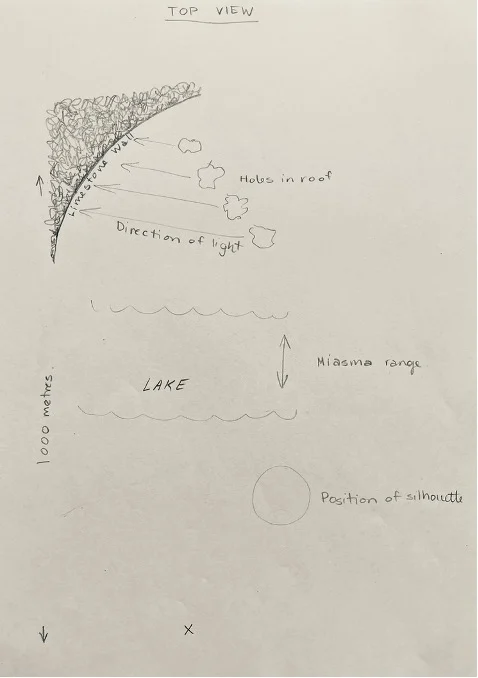 TOP VIEW
Limestone Wall
Holes in roof
Direction of light
Miasma range
LAKE
1000 metres.
Position of silhouette
X